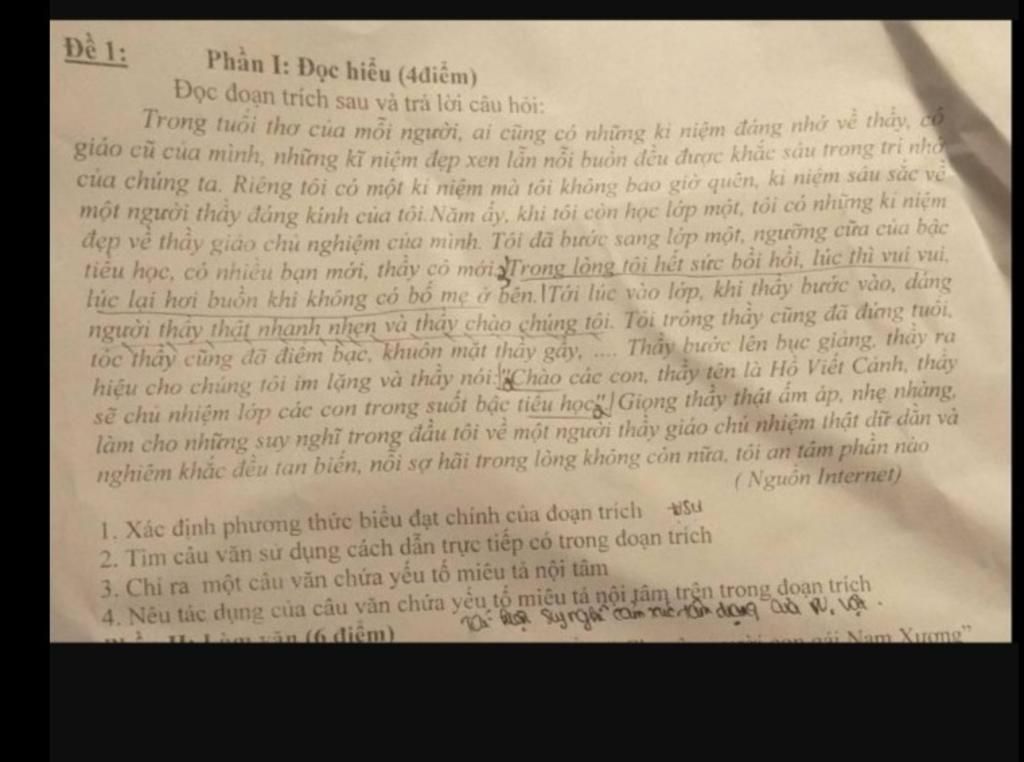 Đề 1:
Phần I: Đọc hiểu (4điểm)
Đọc đoạn trích sau và trả lời câu hỏi:
Trong tuổi thơ của mỗi người, ai cũng có những kỉ niệm đáng nhớ về thầy, cô
giáo cũ của mình, những kĩ niệm đẹp xen lẫn nỗi buồn đều được khắc sâu trong trí nhớ
của chúng ta. Riêng tôi có một kỉ niệm mà tôi không bao giờ quên, kỉ niệm sâu sắc về
một người thầy đáng kính của tôi.Năm ấy, khi tôi còn học lớp một, tôi có những kỉ niệm
đẹp về thầy giáo chủ nghiệm của mình. Tôi đã bước sang lớp một, ngưỡng cữa của bậc
tiểu học, có nhiều bạn mới, thầy cô mới. Trong lòng tôi hết sức bồi hồi, lúc thì vui vui,
lúc lại hơi buồn khi không có bố mẹ ở bên. Tới lúc vào lớp, khi thầy bước vào, dáng
người thầy thật nhanh nhẹn và thầy chào chúng tôi. Tôi trông thầy cũng đã đứng tuổi,
tóc thầy cũng đã điểm bạc, khuôn mặt thầy gầy, .... Thầy bước lên bục giảng, thầy ra
hiệu cho chúng tôi im lặng và thầy nói: "Chào các con, thầy tên là Hồ Viết Cảnh, thầy
sẽ chủ nhiệm lớp các con trong suốt bậc tiểu học". Giọng thầy thật ấm áp, nhẹ nhàng,
làm cho những suy nghĩ trong đầu tôi về một người thầy giáo chủ nhiệm thật dữ dằn và
nghiêm khắc đều tan biến, nỗi sợ hãi trong lòng không còn nữa, tôi an tâm phần nào
( Nguồn Internet)
1. Xác định phương thức biểu đạt chính của đoạn trích
2. Tìm câu văn sử dụng cách dẫn trực tiếp có trong đoạn trích
3. Chỉ ra một câu văn chứa yếu tố miêu tả nội tâm
4. Nêu tác dụng của câu văn chứa yếu tố miêu tả nội tâm trên trong đoạn trích
suy nghĩ cảm xúc tâm trạng của
II: Làm văn (6 điểm)
con gái Nam Xương"